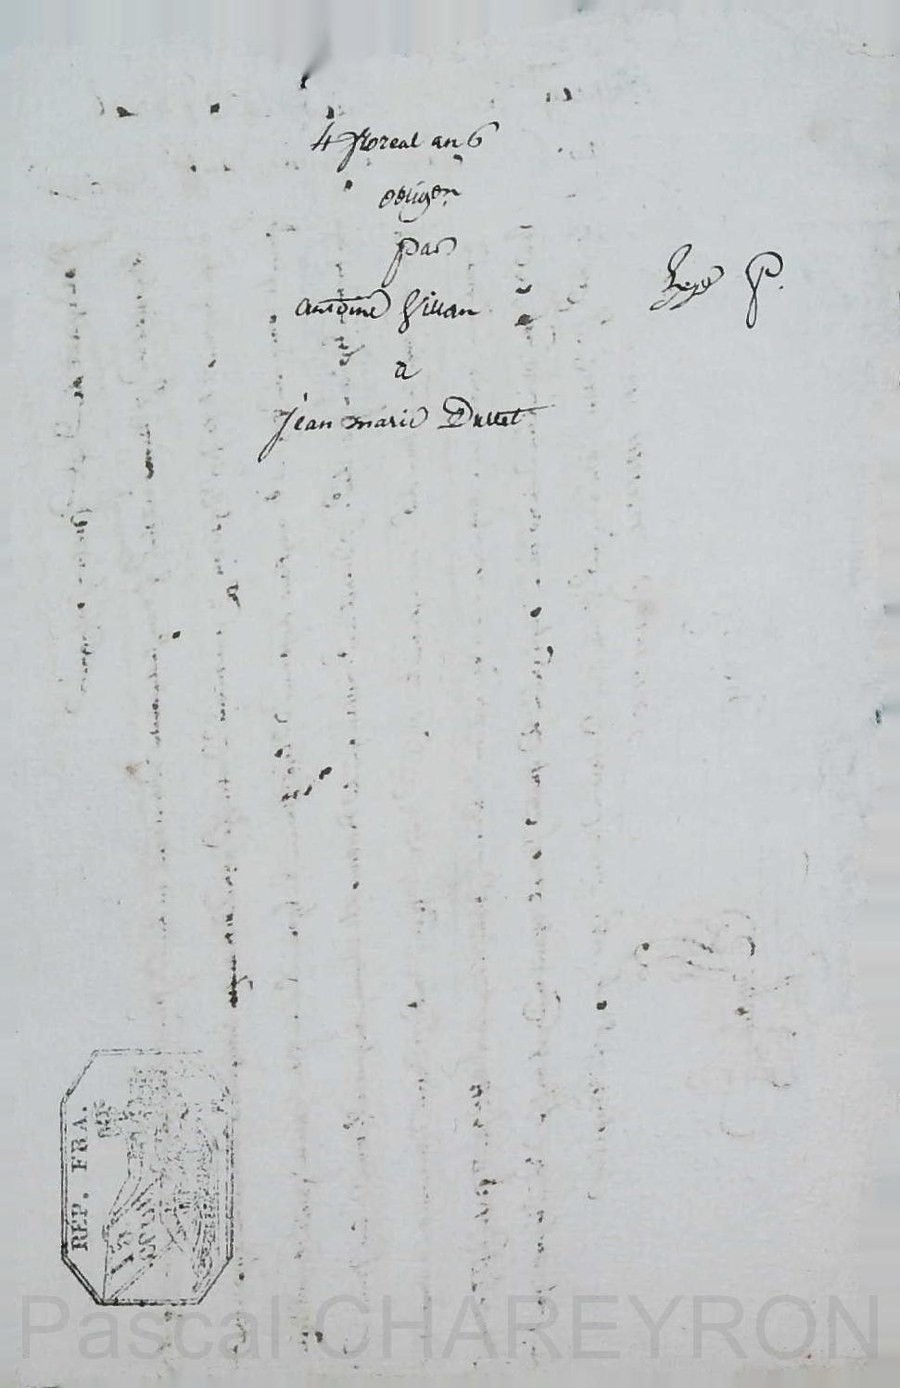 4 floreal an 6
obligõn
par
antoine Villan
a
jean marie Duttel
P.
REP. FRA.
Pascal CHAREYRON